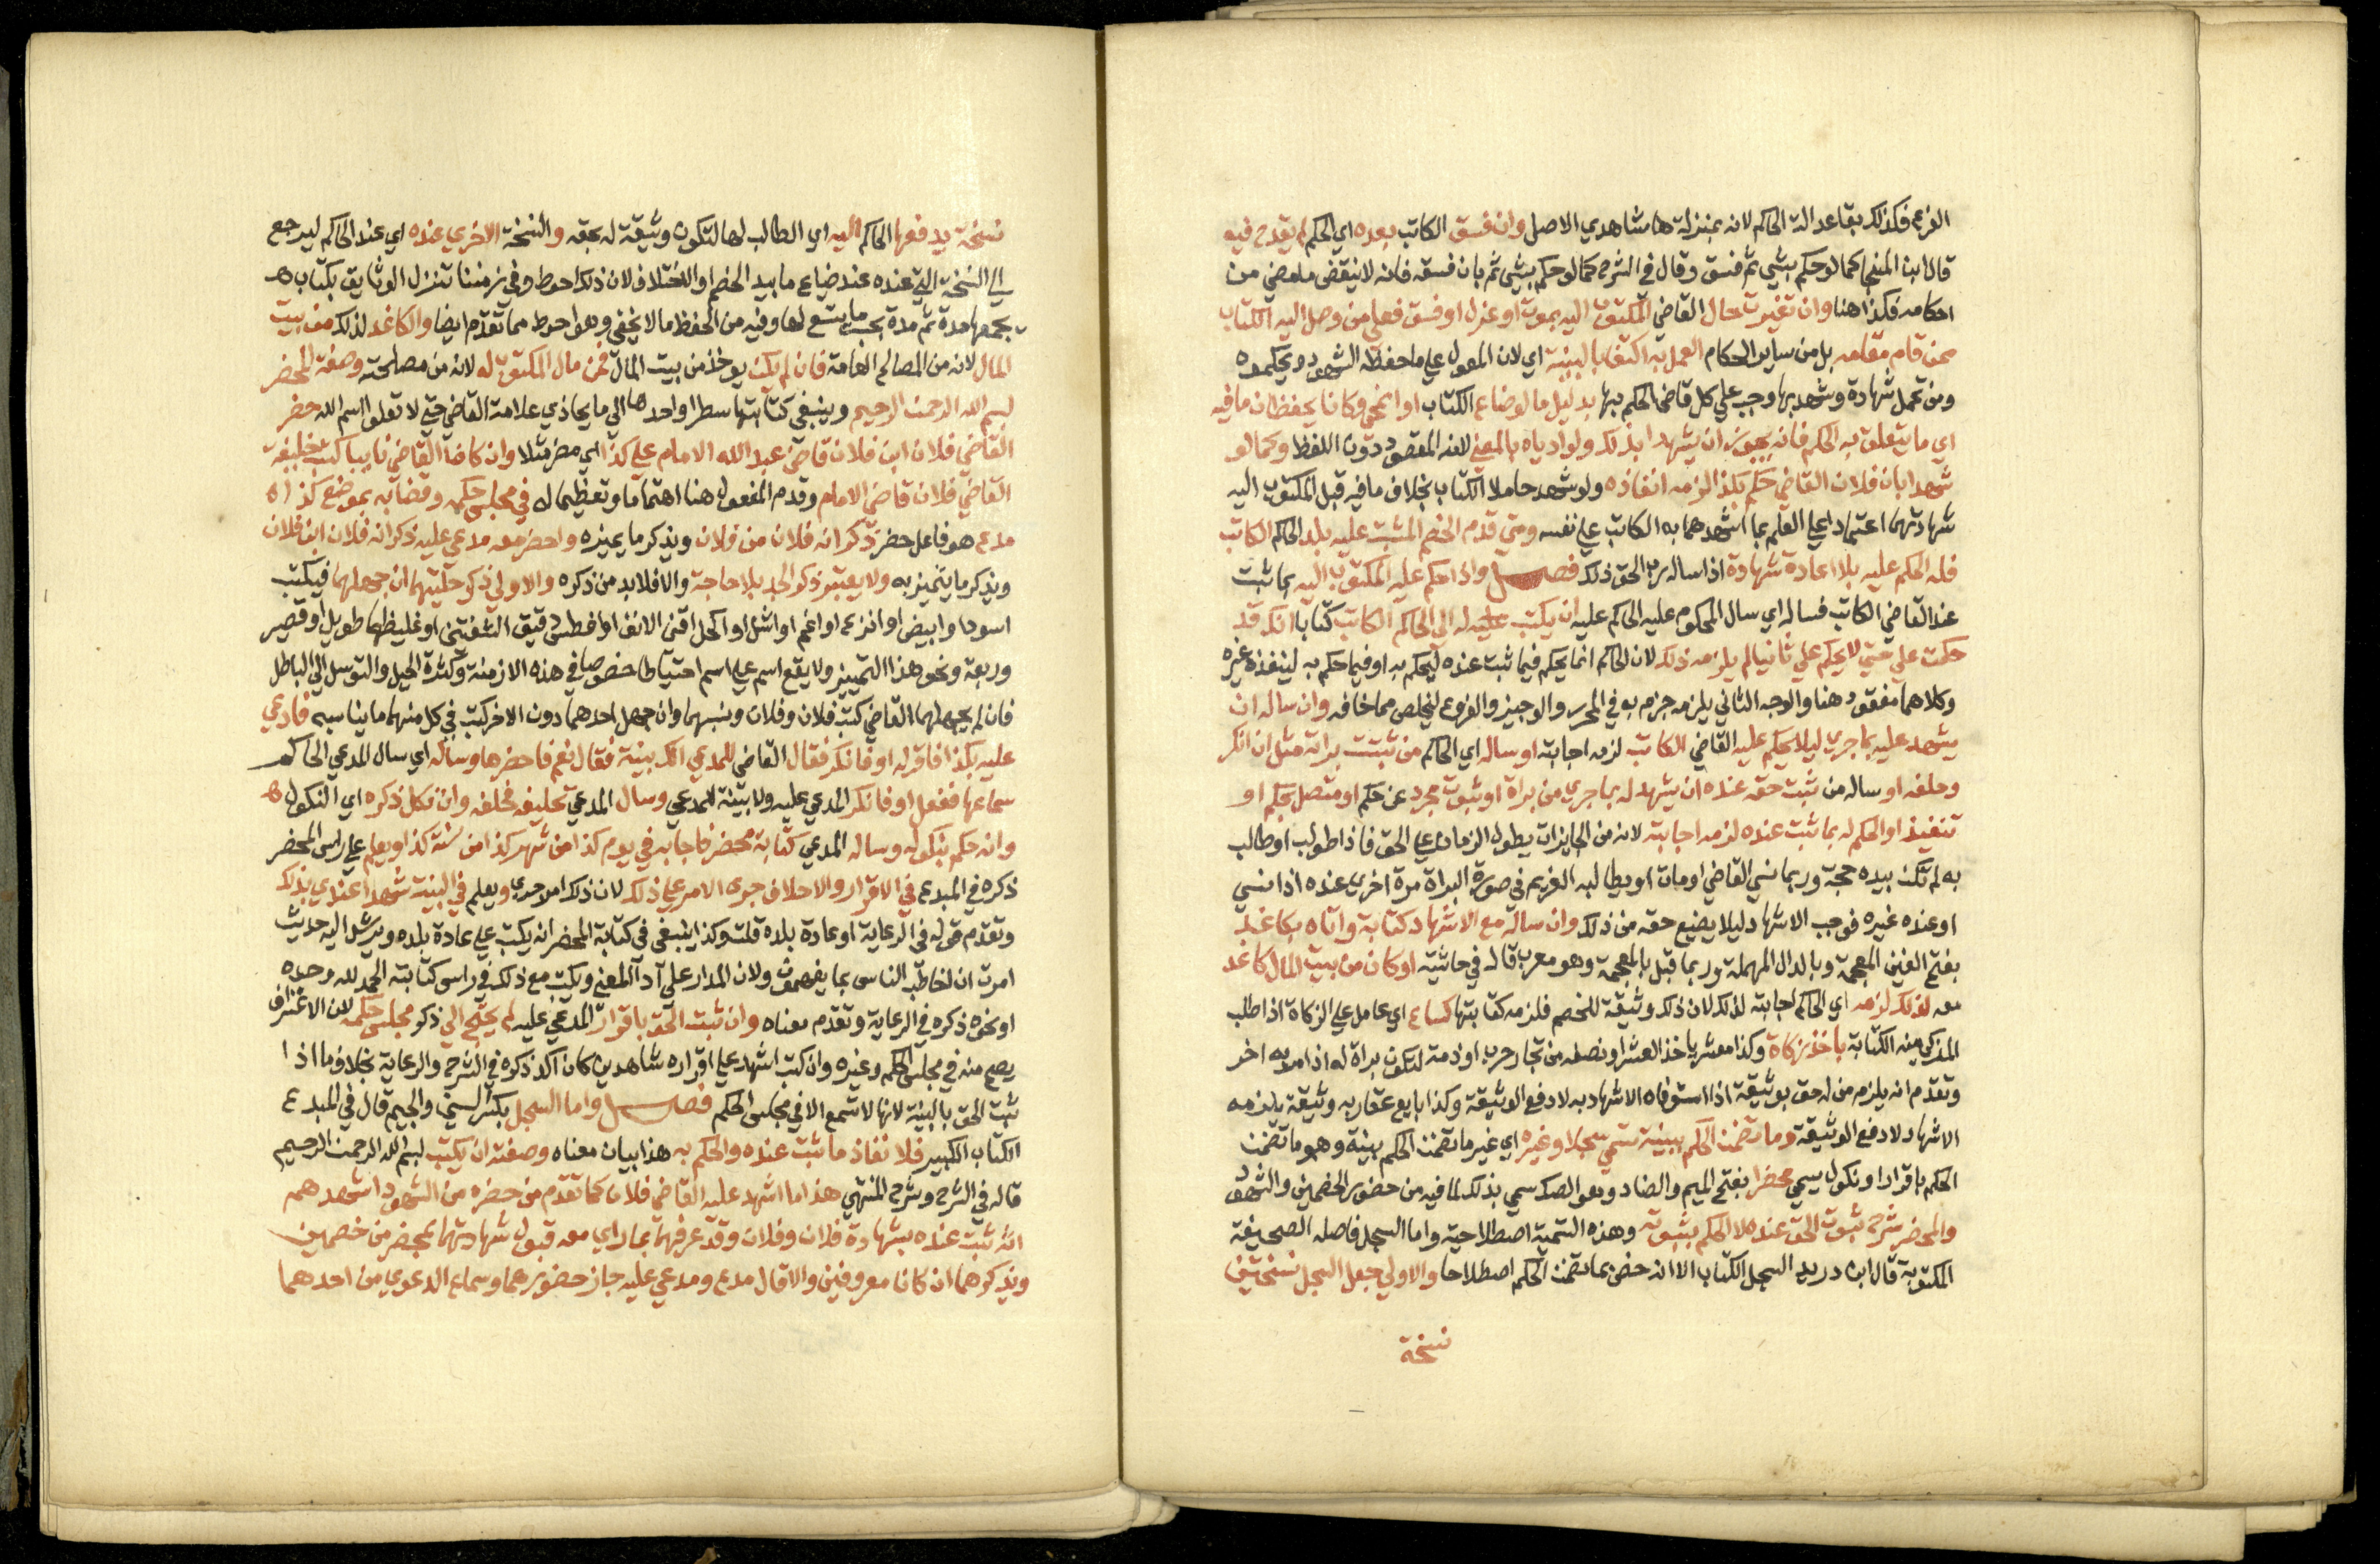 الفرع فكذلك بقا عدالة الحاكم لانه بمنزلة شاهدي الاصل وان فسق الكاتب بعده اي الحكم لم يقدح فيه
قال ابن المنجا كما لو حكم بشي ثم فسق وقال في الشرح كما لو حكم بشي ثم بان فسقه فانه لا ينقض ما مضي من
احكامه فكذا هنا وان تغيرت حال القاضي المكتوب اليه بموت او عزل او فسق فعلي من وصل اليه الكتاب
ممن قام مقامه بل من ساير الحكام العمل به اكتفا بالبينة اي لان المعول علي ما حفظه الشهود وتحملوه
ومن تحمل شهادة وشهد بها وجب علي كل قاض الحكم بها بدليل ما لو ضاع الكتاب او انمحي وكانا يحفظان ما فيه
اي ما يتعلق به الحكم فانه يجوز ان يشهدا بذلك ولو ادياه بالمعني لانه المقصود دون اللفظ وكما لو
شهدا بان فلان القاضي حكم بكذا لزمه انفاذه ولو شهد حاملا الكتاب بخلاف ما فيه قبل المكتوب اليه
شهادتهما اعتمادا علي العلم بما اشهدهما به الكاتب علي نفسه ومتي قدم الخصم المثبت عليه بلد الحاكم الكاتب
فله الحكم عليه بلا اعادة شهادة اذا ساله رب الحق ذلك فصل واذا حكم عليه المكتوب اليه بما ثبت
عند القاضي الكاتب فساله اي سال المحكوم عليه الحاكم عليه ان يكتب له الي الحاكم الكاتب كتابا انك قد
حكمت علي حتي لا يحكم علي ثانيا لم يلزمه ذلك لان الحاكم انما يحكم فيما ثبت عنده ليحكم به او فيما حكم به لينفذه غيره
وكلاهما مفقود هنا والوجه الثاني يلزمه جزم به في المحرر والوجيز والفروع ليخلص مما خافه وان ساله ان
يشهد عليه بما جري ليلا يحكم عليه القاضي الكاتب لزمه اجابته او ساله اي الحاكم من ثبتت براته مثل ان انكر
وحلفه او ساله من ثبت حقه عنده ان يشهد له بما جري من براة او ثبوت مجرد عن حكم او متصل بحكم او
تنفيذ او الحكم له بما ثبت عنده لزمه اجابته لانه من الجايزات يطول الزمان علي الحق فاذا طولب او طالب
به لم تكن بيده حجة وربما نسي القاضي او مات او يطالبه الغريم في صورة البراة مرة اخري عنده اذا نسي
او عنده غيره فوجب الاشهاد ليلا يضيع حقه من ذلك وان ساله مع الاشهاد كتابة واتاه بكاغد
بفتح الغين المعجمة وبالدال المهملة وربما قيل بالمعجمة وهو معرب قاله في حاشيته او كان من بيت المال كاغد
معد لذلك لزمه اي الحاكم اجابته لذلك لان ذلك وثيقة للخصم فلزمه كتابتها كساع اي عامل علي الزكاة اذا طلب
المزكي منه الكتابة باخذ زكاة وكذا معشر ياخذ العشر او نصفه من تجار حرب او ذمة لتكون براة له اذا مر به اخر
وتقدم انه يلزم من له حق بوثيقة اذا استوفاه الاشهاد به لا دفع الوثيقة وكذا بايع عقار به وثيقة يلزمه
الاشهاد لا دفع الوثيقة وما تضمن الحكم ببينة سمي سجلا وغيره اي غير ما تضمن الحكم ببينة وهو ما تضمن
الحكم باقرار او نكول يسمي محضرا بفتح الميم والضاد وهو الصك سمي بذلك لما فيه من حضور الخصمين والشهود
والمحضر شرح ثبوت الحق عنده لا الحكم بثبوته وهذه التسمية اصطلاحية واما السجل فاصله الصحيفة
المكتوبة قال ابن دريد السجل الكتاب الا انه خص بما تضمن الحكم اصطلاحا والاولي جعل السجل نسختين
نسخة
نسخة يدفعها الحاكم اليه اي الطالب لها لتكون وثيقة له بحقه والنسخة الاخري عنده اي عند الحاكم ليرجع
الي النسخة التي عنده عند ضياع ما بيد الخصم او الاختلاف لان ذلك احوط وفي زمننا تنزل الوثايق بكتاب
يجمعها مدة ثم مدة بحسب ما يتسع لها وفيه من الحفظ ما لا يخفي وهو احوط مما تقدم ايضا والكاغد لذلك من بيت
المال لانه من المصالح العامة فان لم يكن يوخذ من بيت المال فمن مال المكتوب له لانه من مصلحته وصفة المحضر
بسم الله الرحمن الرحيم وينبغي كتابتها سطرا واحدها الي ما يحاذي علامة القاضي حتي لا تعلو اسم الله حضر
القاضي فلان ابن فلان قاضي عبد الله الامام علي كذا اي مصر مثلا وان كان القاضي نايبا كتب خليفة
القاضي فلان قاضي الامام وقدم المفعول هنا اهتماما وتعظيما له في مجلس حكمه وقضائه بموضع كذا
مدع هو فاعل حضر ذكر انه فلان من فلان ويذكر ما يميزه واحضر معه مدعي عليه ذكر انه فلان ابن فلان
ويذكر ما يتميز به ولا يعتبر ذكر الجد بلا حاجة والا فلا بد من ذكره والاولي ذكر حليتهما ان جهلهما فيكتب
اسود او ابيض او انزع او اغم او اشهل او اكحل اقني الانف او افطس دقيق الشفتين او غليظهما طويل او قصير
وربعة ونحو هذا التمييز ولا يقع اسم علي اسم احتياطا خصوصا في هذه الازمنة وكثرة الحيل والتوسل الي الباطل
فان لم يجهلهما القاضي كتب فلان وفلان ونسبهما وان جهل احدهما دون الاخر كتب في كل منهما ما يناسبه فادعي
عليه بكذا فاقر له او فانكر فقال القاضي للمدعي الك بينة فقال نعم فاحضرها وساله اي سال المدعي الحاكم
سماعها ففعل او فانكر المدعي عليه ولا بينة للمدعي وسال المدعي تحليفه فحلفه وان نكل ذكره اي النكول
وانه حكم بنكوله وساله المدعي كتابة محضر فاجابه في يوم كذا من شهر كذا من سنة كذا ويعلم علي راس المحضر
ذكره في المبدع في الاقرار والاحلاف جري الامر علي ذلك لان ذلك امر جري ويعلم في البينة شهدا عندي بذلك
وتقدم قوله في الرعاية او عادة بلده قلت وكذا ينبغي في كتابة المحضر ان يكتب علي عادة بلده ويرشد اليه حديث
امرت ان اخاطب الناس بما يفهمون ولان المدار علي اداء المعني ويكتب مع ذلك في راس كتابته الحمد لله وحده
او نحوه ذكره في الرعاية وتقدم معناه وان ثبت الحق باقرار المدعي عليه لم يحتج الي ذكر مجلس حكمه لان الاعتراف
يصح منه في مجلس الحكم وغيره وان كتب اشهد علي اقراره شاهدين كان اكد ذكره في الشرح والرعاية بخلاف ما اذا
ثبت الحق بالبينة لانها لا تسمع الا في مجلس الحكم فصل واما السجل بكسر السين والجيم قال في المبدع
الكتاب الكبير فلا نفاذ ما ثبت عنده والحكم به هذا بيان معناه وصفته ان يكتب بسم الله الرحمن الرحيم
قاله في الشرح وشرح المنتهي هذا ما اشهد عليه القاضي فلان كما تقدم من حضره من الشهود اشهدهم
انه ثبت عنده بشهادة فلان وفلان وقد عرفهما بما راي معه قبول شهادتهما بمحضر من خصمين
ويذكرهما ان كانا معروفين والا قال مدع ومدعي عليه جاز حضورهما وسماع الدعوي من احدهما